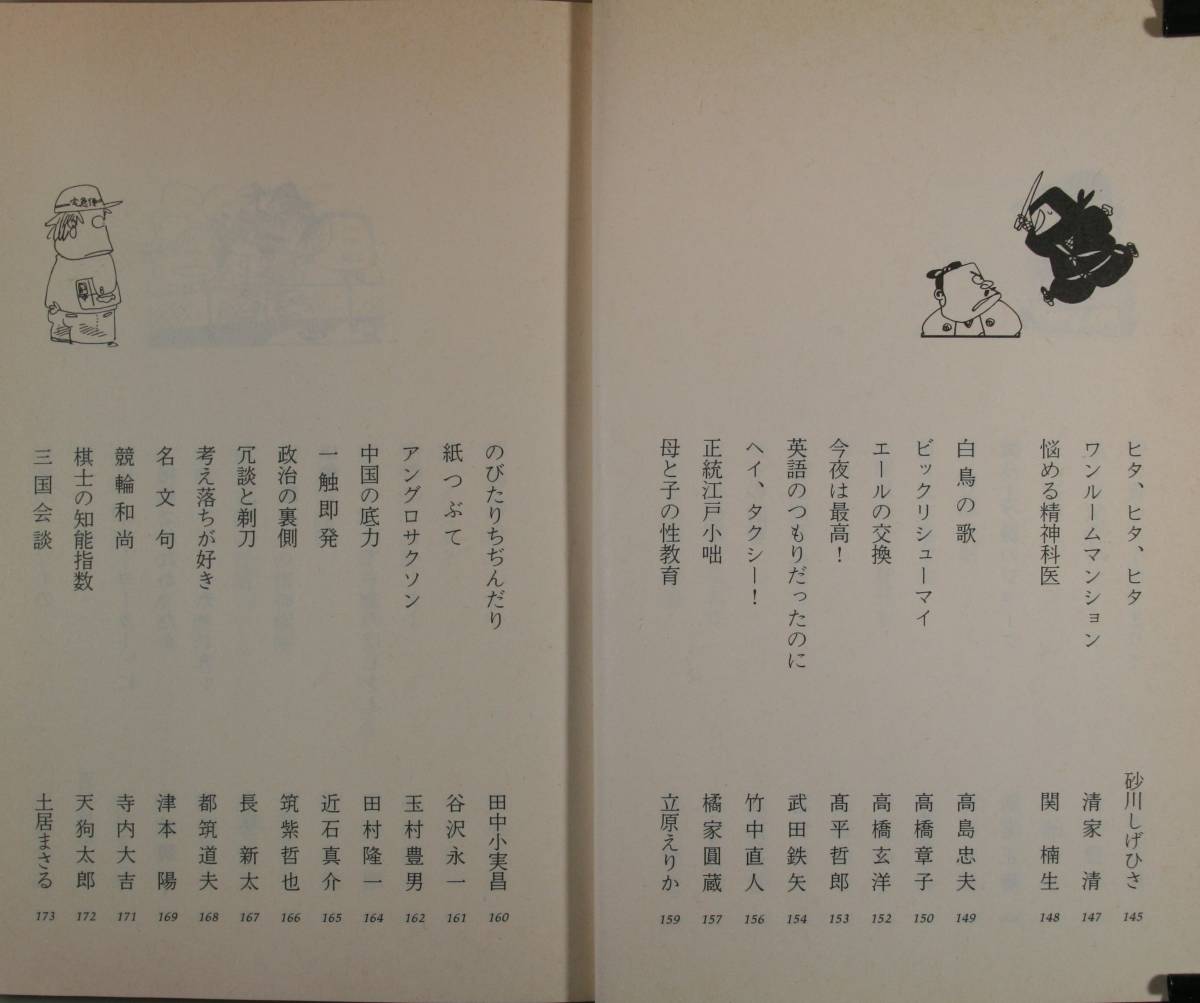 ヒタ、ヒタ、ヒタ 砂川しげひさ 145
ワンルームマンション 清家 清 147
悩める精神科医 関 楠生 148
白鳥の歌 高島忠夫 149
ビックリシューマイ 高橋章子 150
エールの交換 高橋玄洋 152
今夜は最高！ 髙平哲郎 153
英語のつもりだったのに 武田鉄矢 154
ヘイ、タクシー！ 竹中直人 156
正統江戸小咄 橘家圓蔵 157
母と子の性教育 立原えりか 159
のびたりちぢんだり 田中小実昌 160
紙つぶて 谷沢永一 161
アングロサクソン 玉村豊男 162
中国の底力 田村隆一 164
一触即発 近石真介 165
政治の裏側 筑紫哲也 166
冗談と剃刀 長 新太 167
考え落ちが好き 都筑道夫 168
名文句 津本 陽 169
競輪和尚 寺内大吉 171
棋士の知能指数 天狗太郎 172
三国会談 土居まさる 173